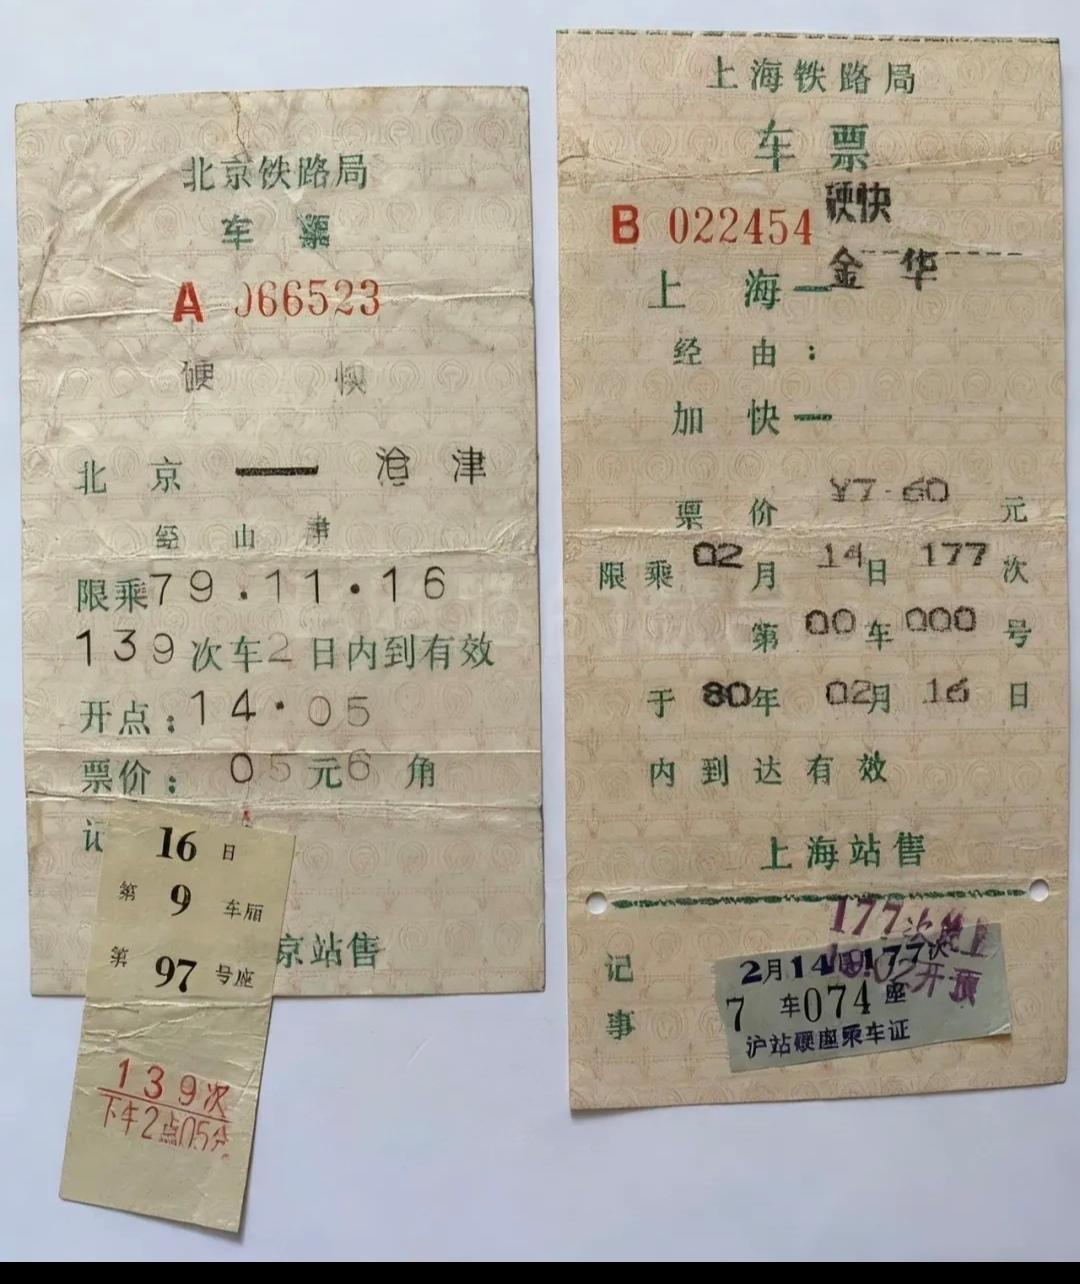 北京铁路局
车票
A 066523
硬快
北京——沧津
经由 津
限乘79.11.16
139次车2日内到有效
开点:14.05
票价:05元6角
记
京站售
16日
第9车厢
第97号座
139次
下午2点05分
上海铁路局
车票
硬快
B 022454
上海—金华
经由:
加快—
票价 ¥7.60元
限乘02月14日177次
第00车000号
于80年02月16日
内到达有效
上海站售
177次
开
记事
2月14日177次
7车074座
沪站硬座乘车证